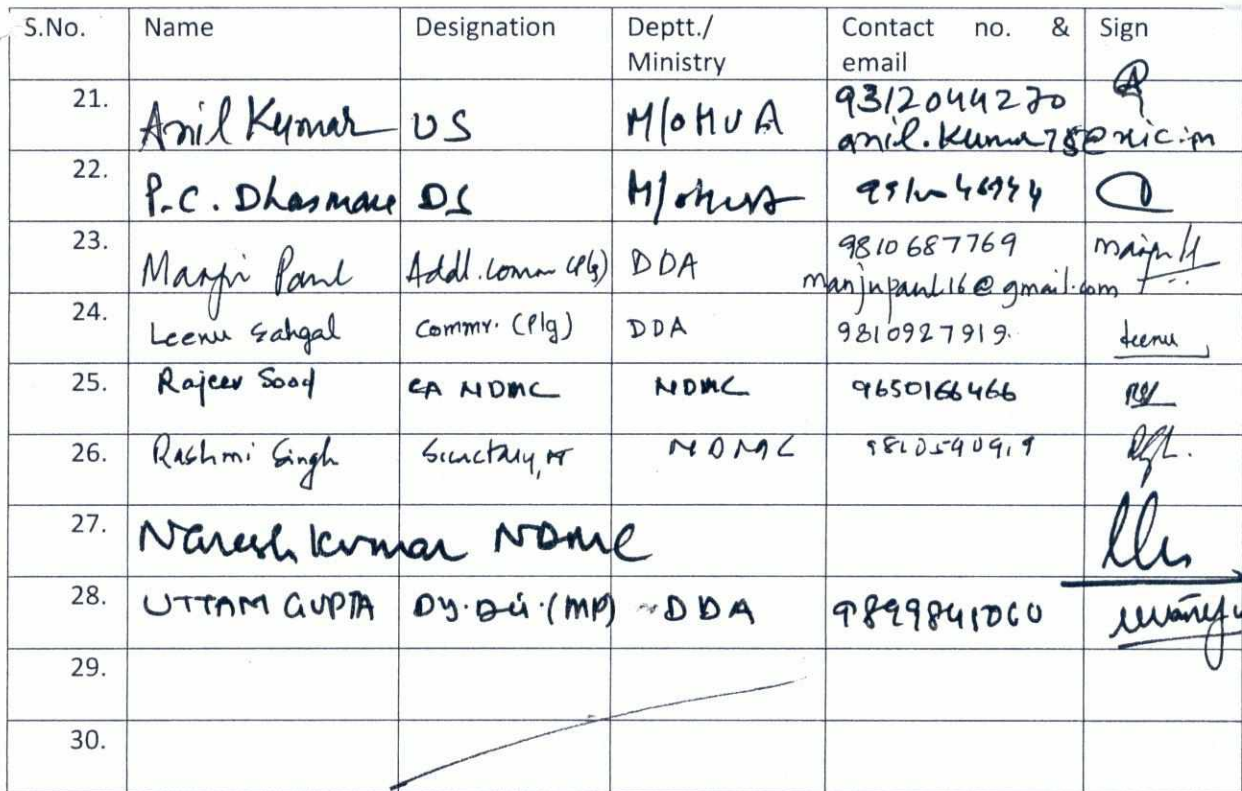 S.No. Name Designation Deptt./ Ministry Contact no. & email Sign
21. Anil Kumar US M/oHUA 9312044270
anil.kumar78@nic.in
22. P.C. Dhasmana DS
23. Manju Paul Addl. Comm (Plg) DDA 9810687769
manjupaul16@gmail.com
24. Leenu Sahgal Commr. (Plg) DDA 9810927919. Leenu
25. Rajeev Sood CA NDMC NDMC 9650166466
26. Rashmi Singh Secretary, NDMC
27. Naresh Kumar NDMC
28. UTTAM GUPTA Dy. Dir. (MP) DDA 9899841060
29.
30.